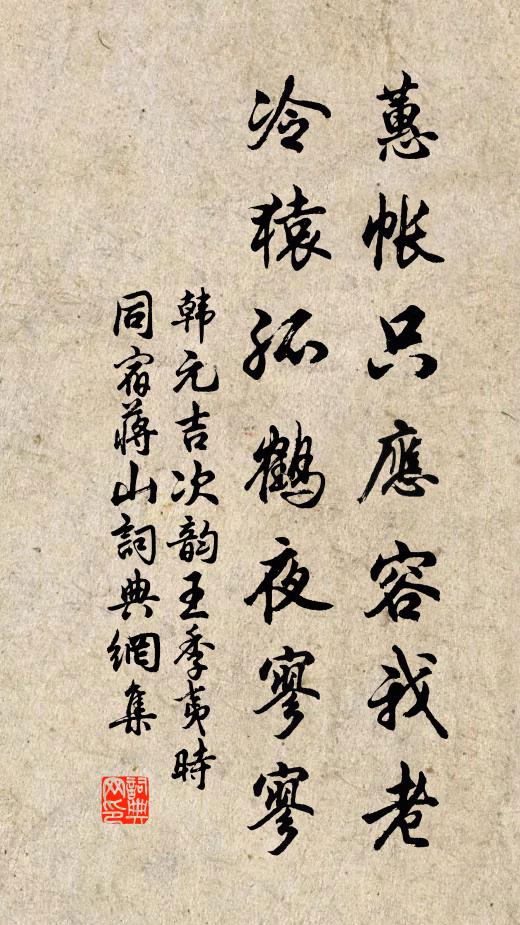 蕙帳只應容我老
冷猿孤鶴夜寥寥
韩元吉次韵王季夷時
同宿蔣山詞典網集
詞典网印